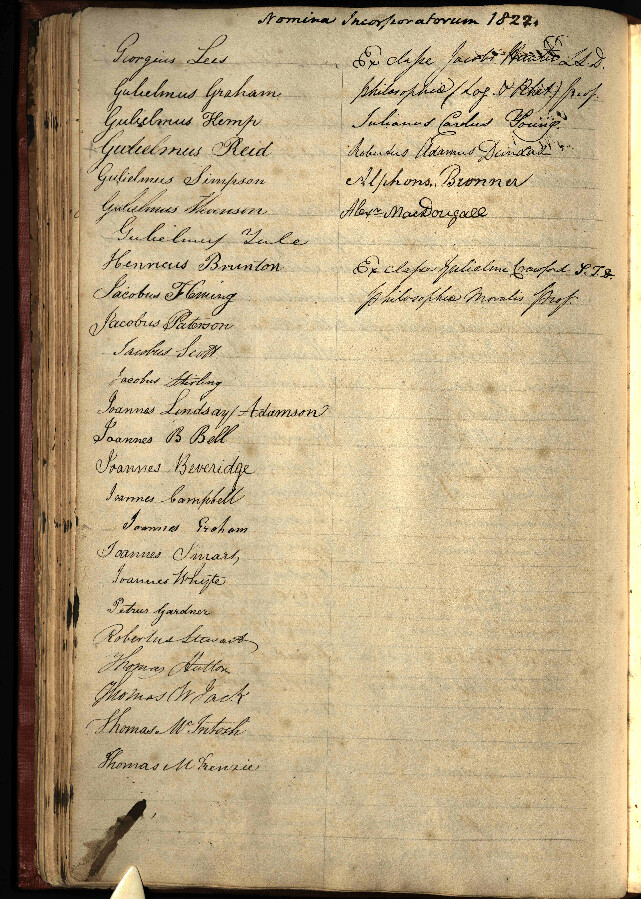 Nomina Incorporatorum 1822.
Georgius Lees
Gulielmus Graham
Gulielmus Hemp
Gulielmus Reid
Gulielmus Simpson
Gulielmus Thomson
Gulielmus Yule
Henricus Brunton
Jacobus Fleming
Jacobus Paterson
Jacobus Scott
Jacobus Stirling
Joannes Lindsay Adamson
Joannes B Bell
Joannes Beveridge
Joannes Campbell
Joannes Graham
Joannes Smart
Joannes Whyte
Petrus Gardner
Robertus Stewart
Thomas Hutton
Thomas W Jack
Thomas McIntosh
Thomas McKenzie
Ex classe Jacobi L.L.D.
philosophiæ (Log. & Rhet.) prof.
Julianus Carolus Young
Robertus Adamus Dundas
Alphons. Bronner
Alexr MacDougall
Ex classe Gulielmi Crawford S.T.D.
philosophiæ Moralis prof.